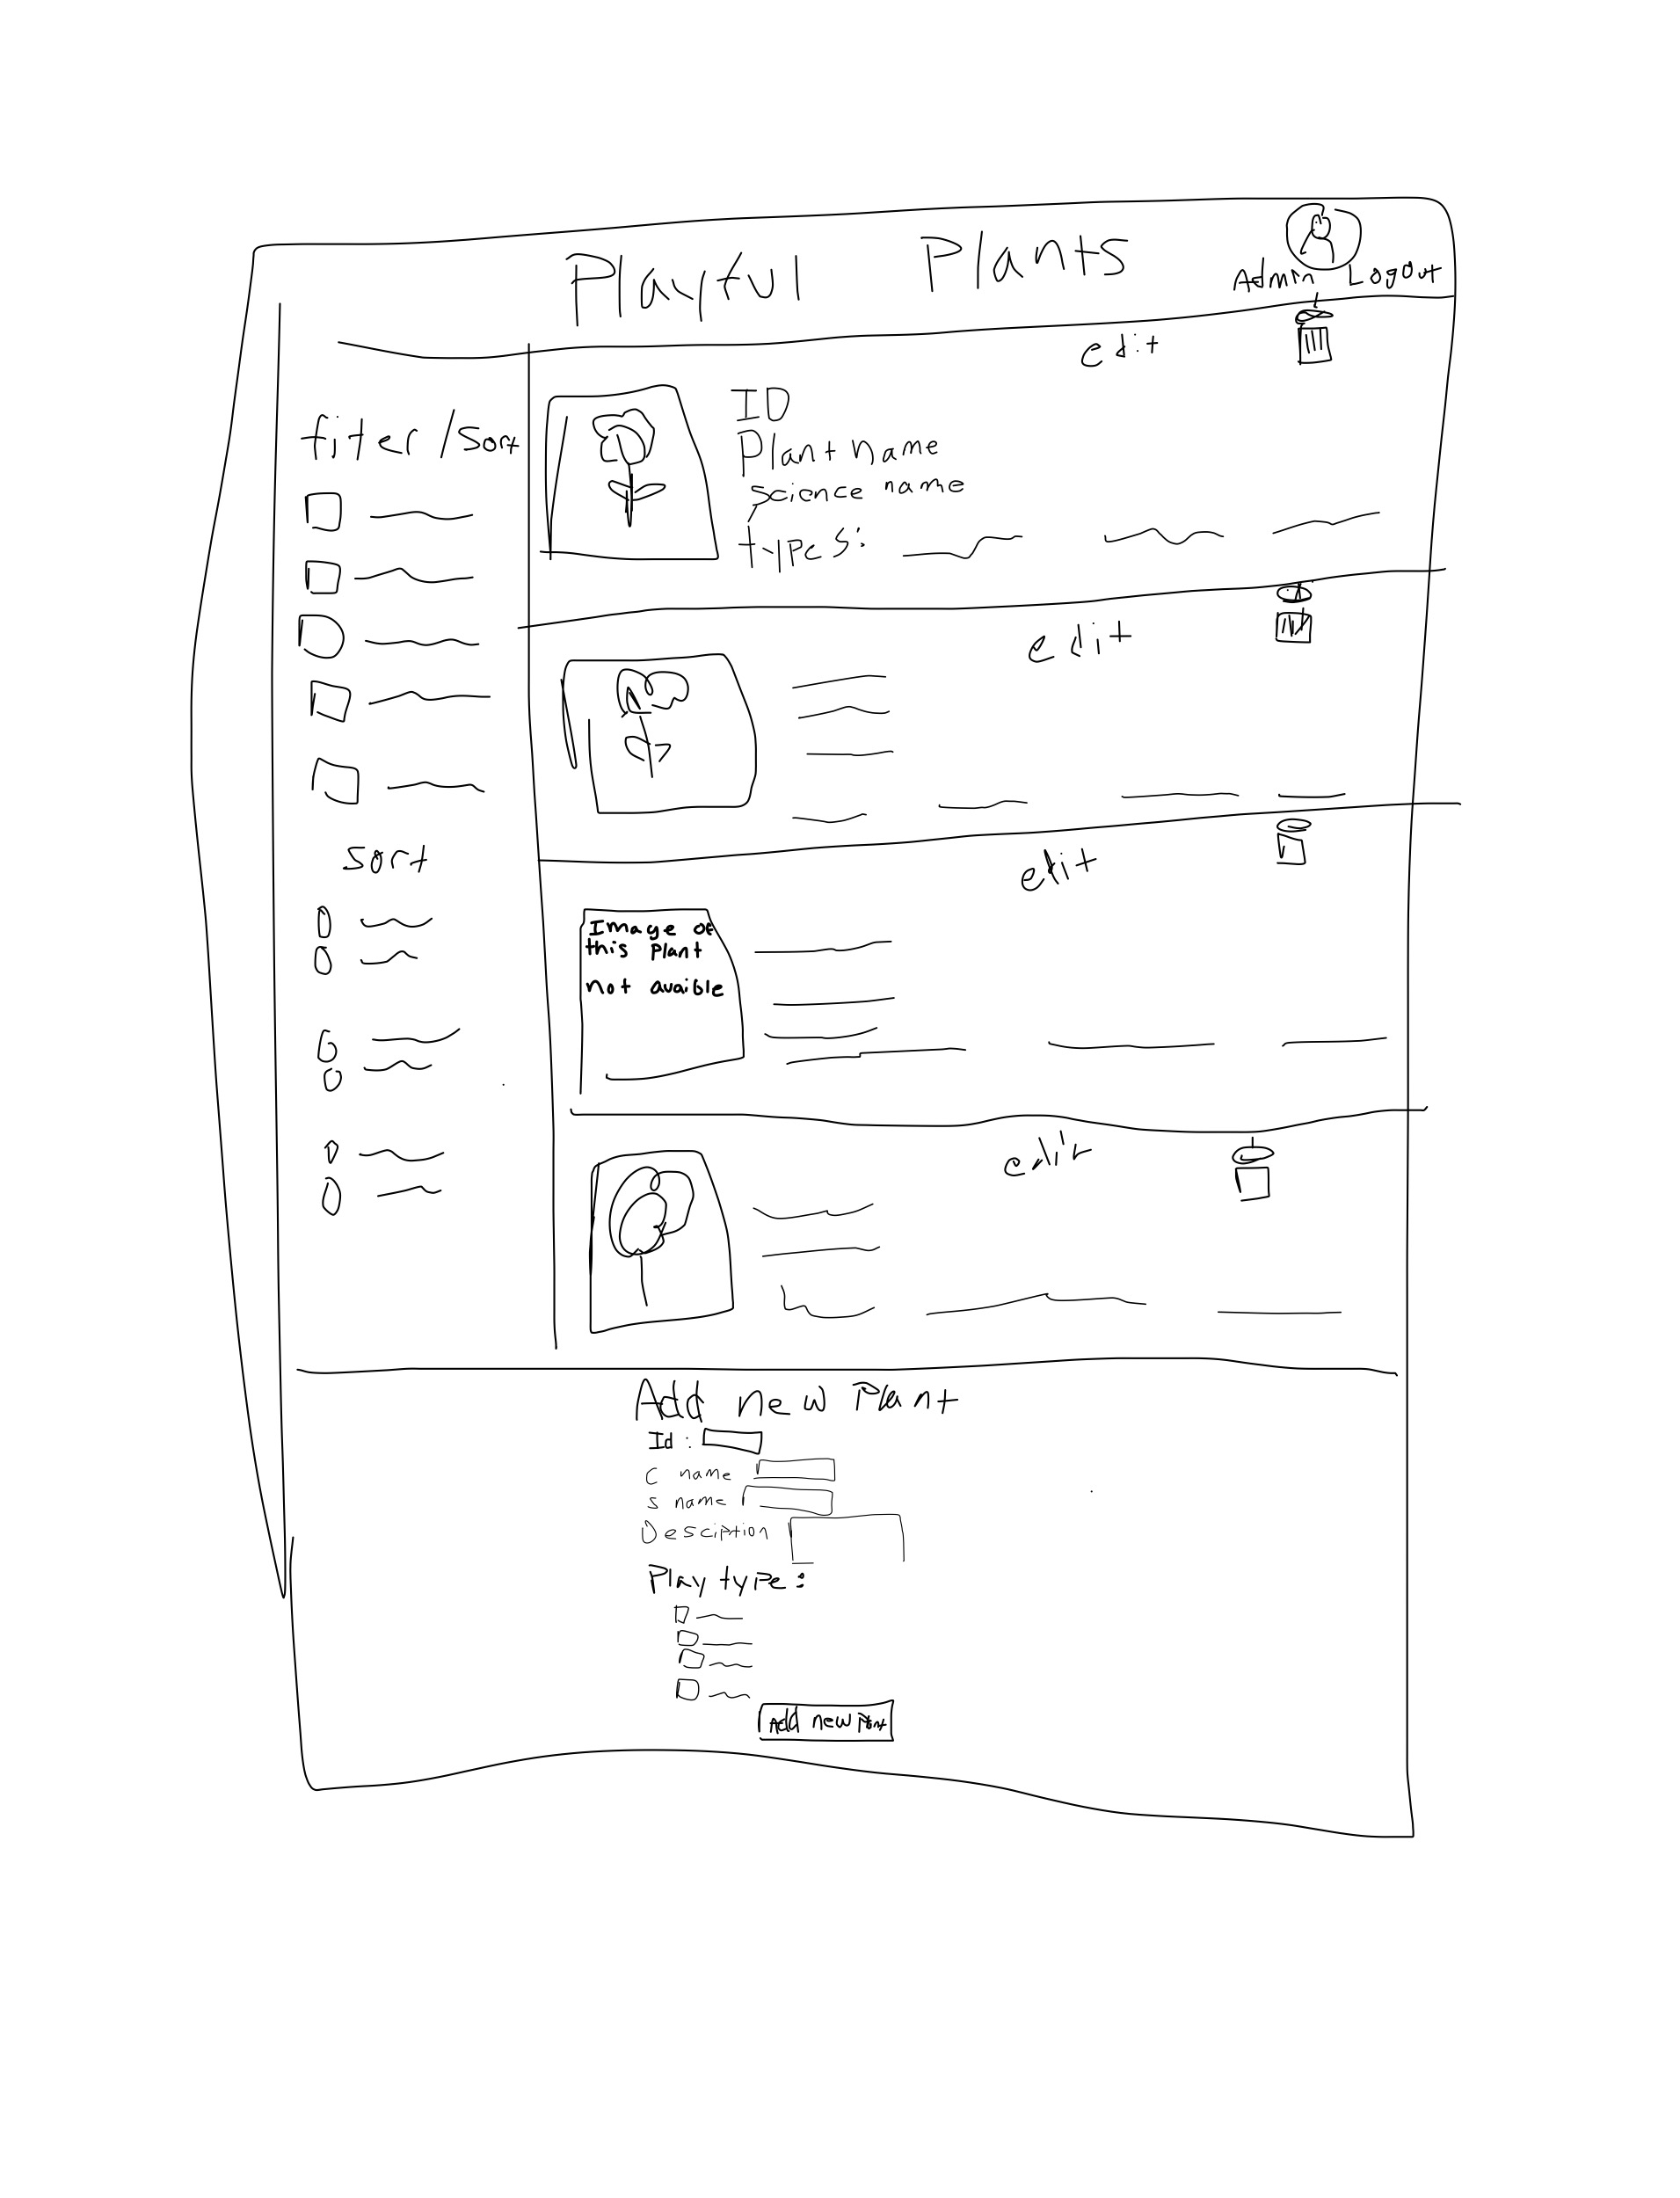 Playful Plants
Admin Logout
edit
filter/Sort
ID
Plant name
Science name
types:
edit
sort
edit
Image of
this Plant
not avaible
edit
Add new Plant
Id:
C name
S name
Desciption
Play type:
Add new Plant